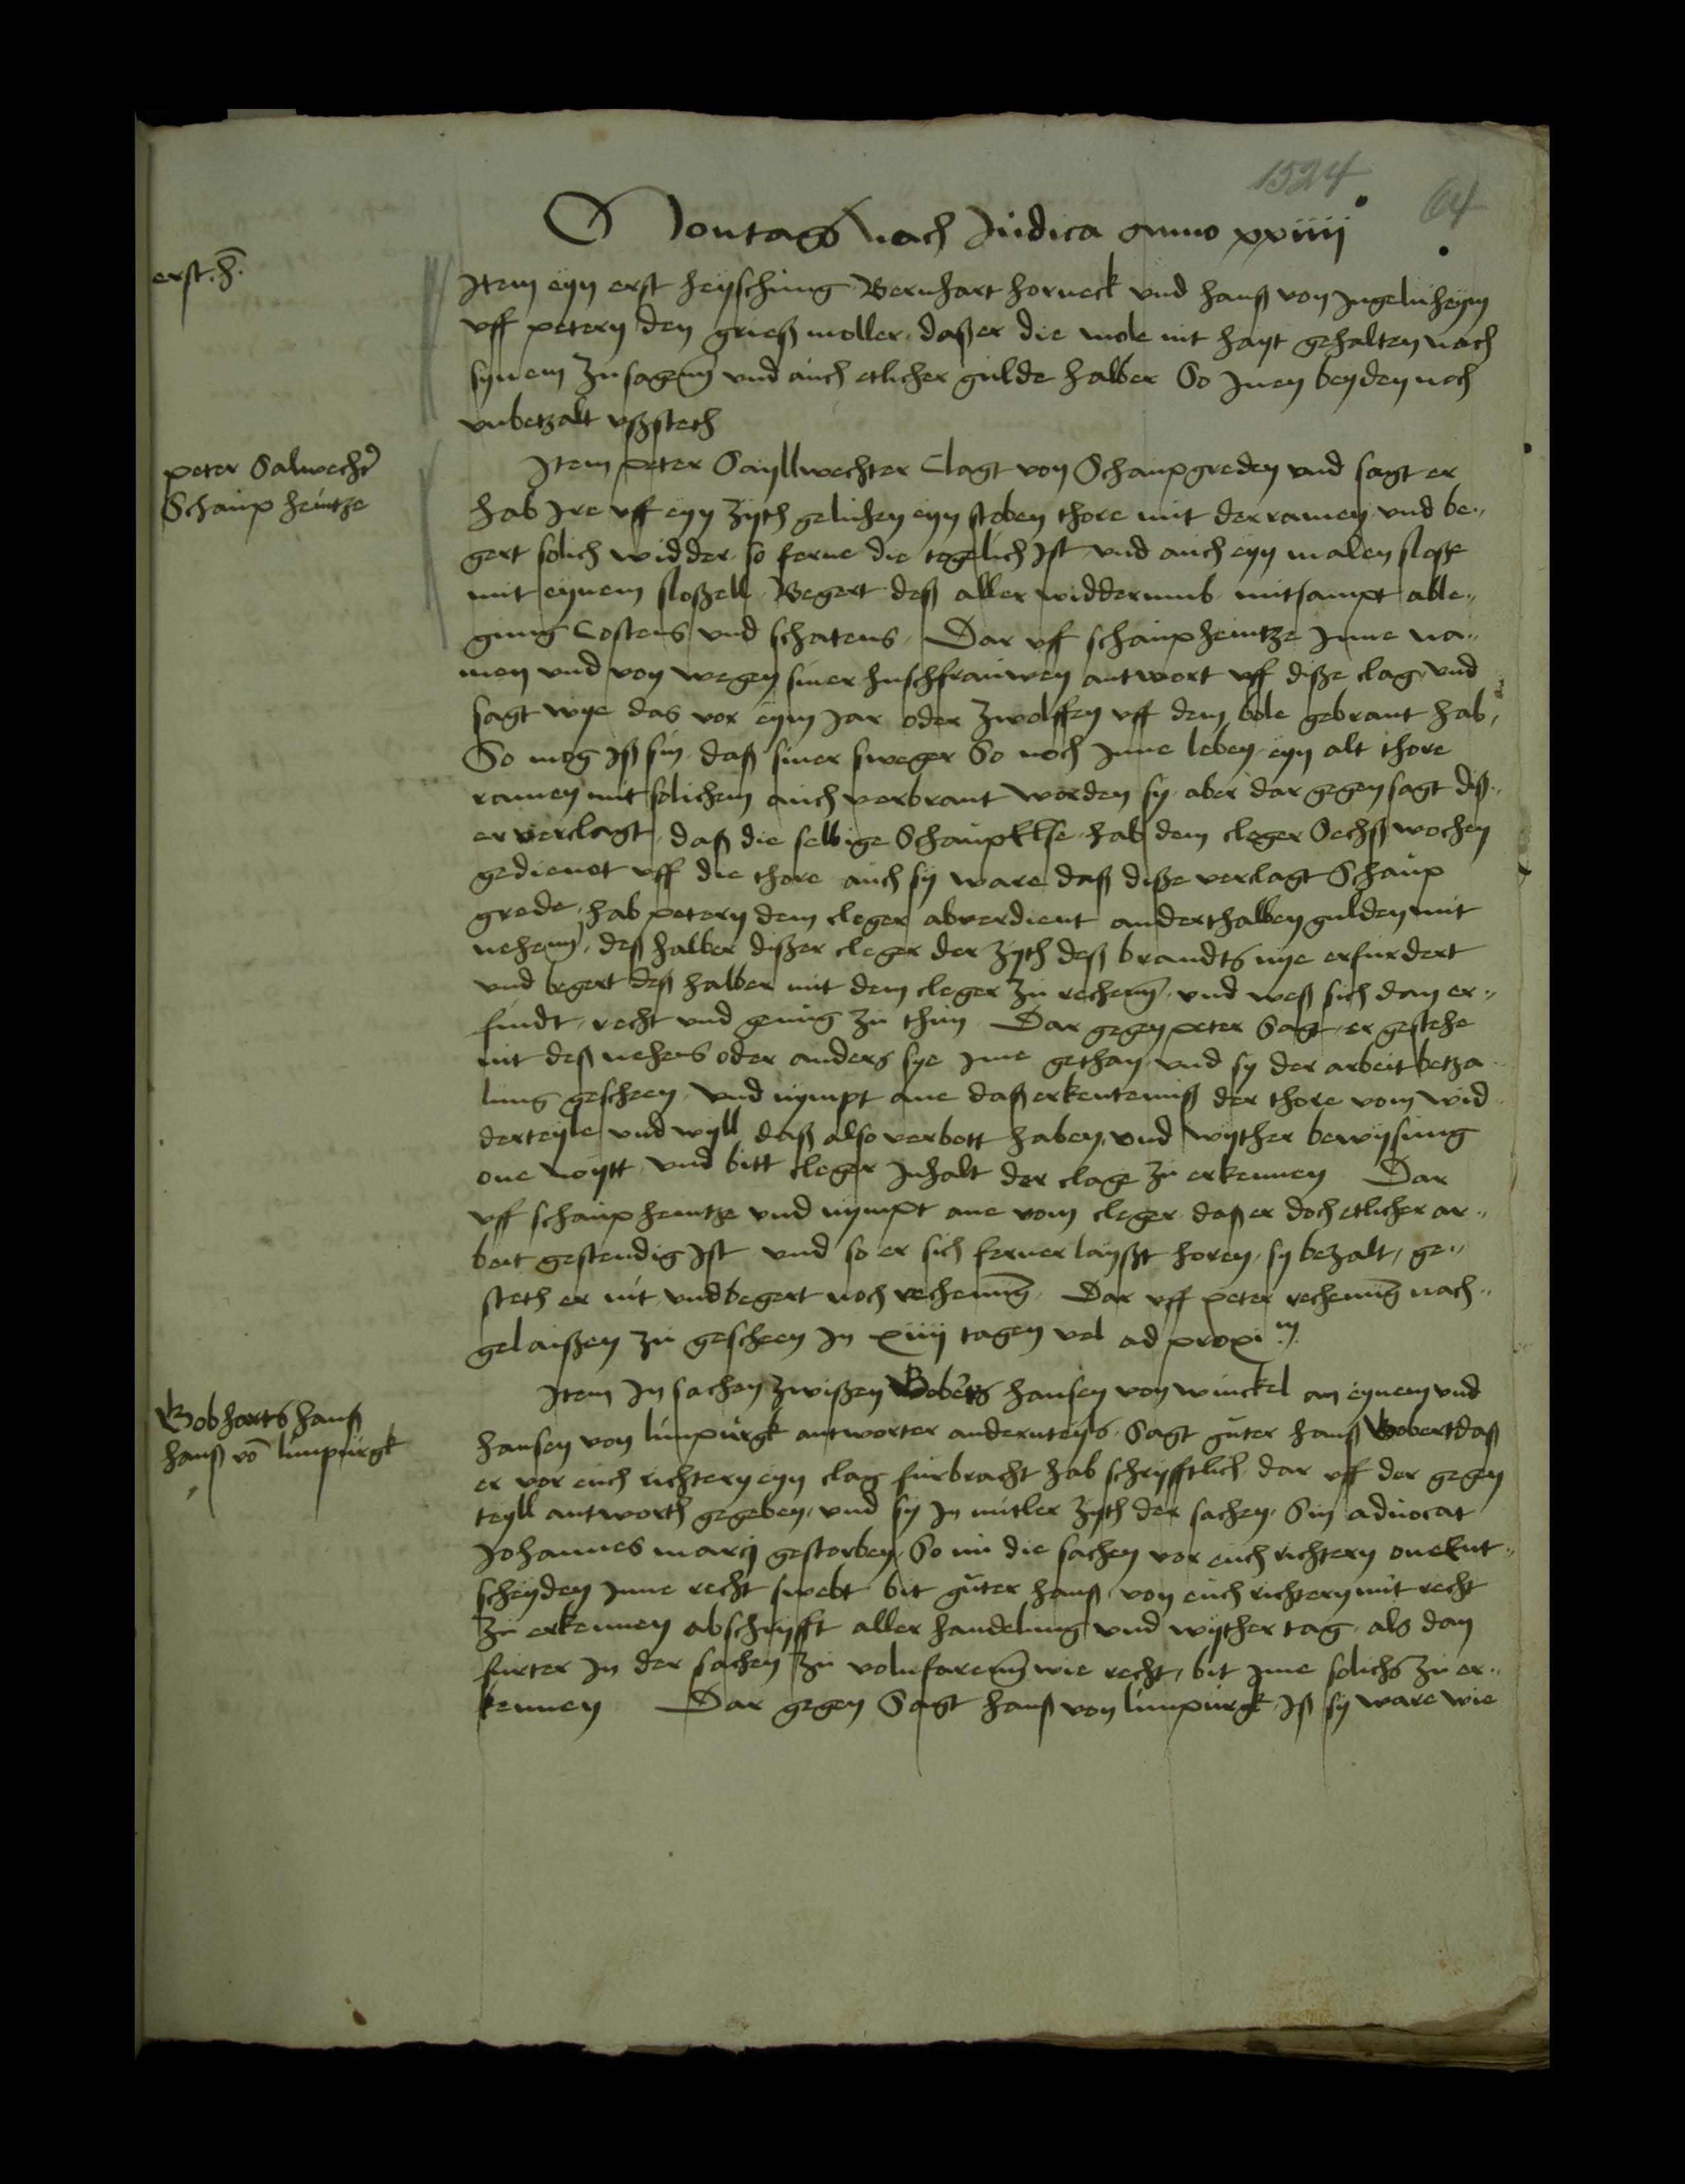 1524
64
Montags nach Judica anno xxiiii
erst. h.
Item eyn erst heyschung Bernhart Horneck und Hanß von Ingelnheym
uff Petern den grieß moller, daß er die mole nit hayt gehalten nach
synem zusagen und auch etlicher gulde halber So Inen beyden noch
unbetzalt ußsteth
Peter Salwechter
Schaup Heintze
Item Peter Sayllwechter Clagt von Schaupgreden und sagt er
hab Ire uff eyn zyth gelichen eyn stoben thore mit der ramen und be„
gert solich widder so ferne die togelich Ist und auch eyn malen sloße
mit eynem sloßell Begert deß aller widderumb mitsampt able„
gung Costens und schatens, Dar uff Schaupheintze Inne na„
men und von wegen siner hußfrauwen antwort uff diße clag und
sagt wye das vor eym Jar oder zwolffen uff dem bole gebrant hab,
So mog Iß sin daß siner sweger So noch Inne leben eyn alt thore
ramen mit solichem auch verbrant worden sy aber dar gegen sagt diß„
er verclagt, daß die selbige Schaup Else hab dem cleger Sechß wochen
gedienet uff die thore auch sy ware daß diße verclagt Schaup
grede, hab Petern dem cleger abverdient anderthalben gulden mit
nehen, deß halber dißer cleger der zyth deß brandts nye erfurdert
und begert deß halber mit dem cleger zu rechen und weß sich dan er„
findt, recht und genug zu thun Dar gegen Peter Sagt, er gestehe
nit deß nehens oder anders sye Ime gethan und sy der arbeit betza
lung gescheen, und nympt ane daß erkentenuß der thore vom wid
derteyle und wyll daß also verbott haben, und wyther bewysung
one noytt und bitt cleger Inhalt der clage zu erkennen Dar
uff Schaup Heintze und nympt ane vom cleger, daß er doch etlicher ar„
beit gestendig Ist und so er sich ferner laysst horen, sy bezalt, ge„
steth er nit und begert noch rechenung Dar uff Peter rechenung nach„
gelaißen zu gescheen In xiiii tagen vel ad proxim
Bobharts Hanß
Hanß von Limpurgk
Item In sachen zwißen Boberts Hansen von Winckel an eynem und
Hansen von Limpurgk antworter anderuteyls Sagt guter Hanß Bobert daß
er vor euch richtern eyn clag furbracht hab schryfftlich dar uff der gegen
teyll antworth gegeben, und sy In mitler zyth der sachen, Sin advocat
Johannes marcy gestorben So nu die sachen vor euch richtern one Ent„
scheyden Inne recht swebt bit guter Hanß, von euch richtern mit recht
zu erkennen abschryfft aller handelung und wyther tag als dan
furter In der sachen zu volnfaren wie recht, bit Ime solichs zu er„
kennen Dar gegen Sagt Hanß von Limpurgk, Iß sy ware wie